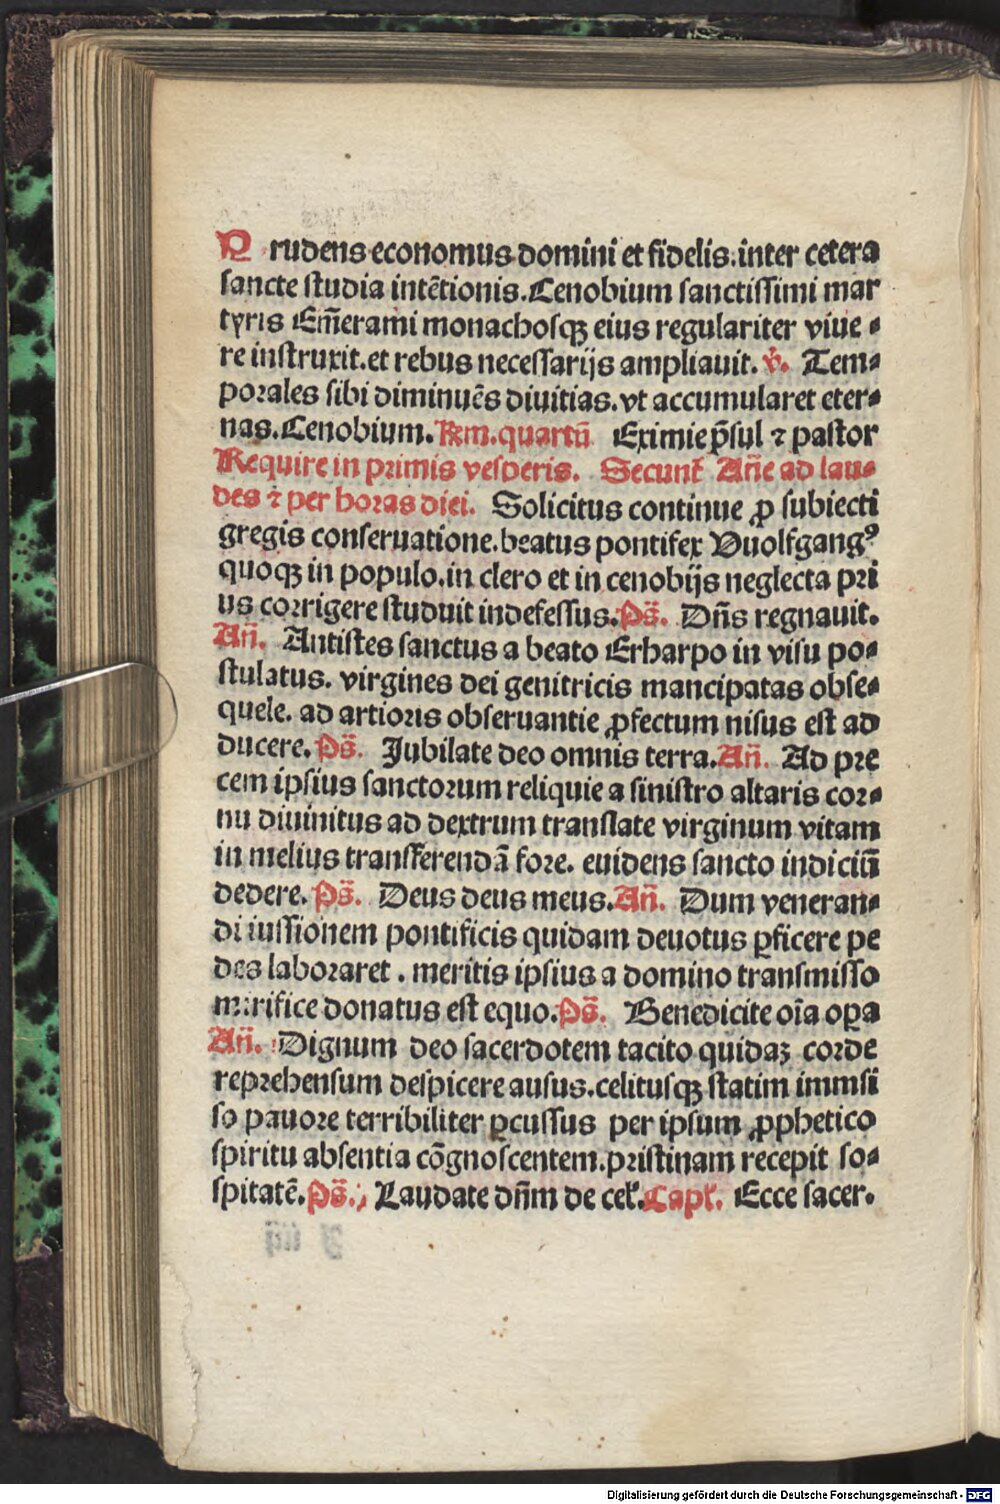 Prudens economus domini et fidelis. inter cetera
sancte studia intētionis. Cenobium sanctissimi mar
tyris Em̄erami monachosqꝫ eius regulariter viue⸗
re instruxit. et rebus necessarijs ampliauit. v̓. Tem⸗
porales sibi diminuēs diuitias. vt accumularet eter⸗
nas. Cenobium. Rm. quartū Eximie p̄sul ⁊ pastor
Require in primis vesperis. Secunt̄ Añe ad lau⸗
des ⁊ per horas diei. Solicitus continue ꝓ subiecti
gregis conseruatione. beatus pontifex Vuolfgangꝰ
quoqꝫ in populo. in clero et in cenobijs neglecta pri
us corrigere studuit indefessus. Ps̄. Dñs regnauit.
Añ. Antistes sanctus a beato Erharpo in visu po⸗
stulatus. virgines dei genitricis mancipatas obse⸗
quele. ad artioris obseruantie ꝓfectum nisus est ad
ducere. Ps̄. Jubilate deo omnis terra. Añ. Ad pre
cem ipsius sanctorum reliquie a sinistro altaris cor⸗
nu diuinitus ad dextrum translate virginum vitam
in melius transferendā fore. euidens sancto indiciū
dedere. Ps̄. Deus deus meus. Añ. Dum veneran⸗
di iussionem pontificis quidam deuotus ꝑficere pe
des laboraret. meritis ipsius a domino transmisso
mirifice donatus est equo. Ps̄. Benedicite oīa oꝑa
Añ. Dignum deo sacerdotem tacito quidaꝫ corde
reprehensum despicere ausus. celitusqꝫ statim immsi
so pauore terribiliter ꝑcussus per ipsum ꝓphetico
spiritu absentia cōgnoscentem. pristinam recepit so⸗
spitatē. Ps̄. Laudate dñm de cel̓. Capl̓. Ecce sacer.
Digitalisierung gefördert durch die Deutsche Forschungsgemeinschaft - DFG